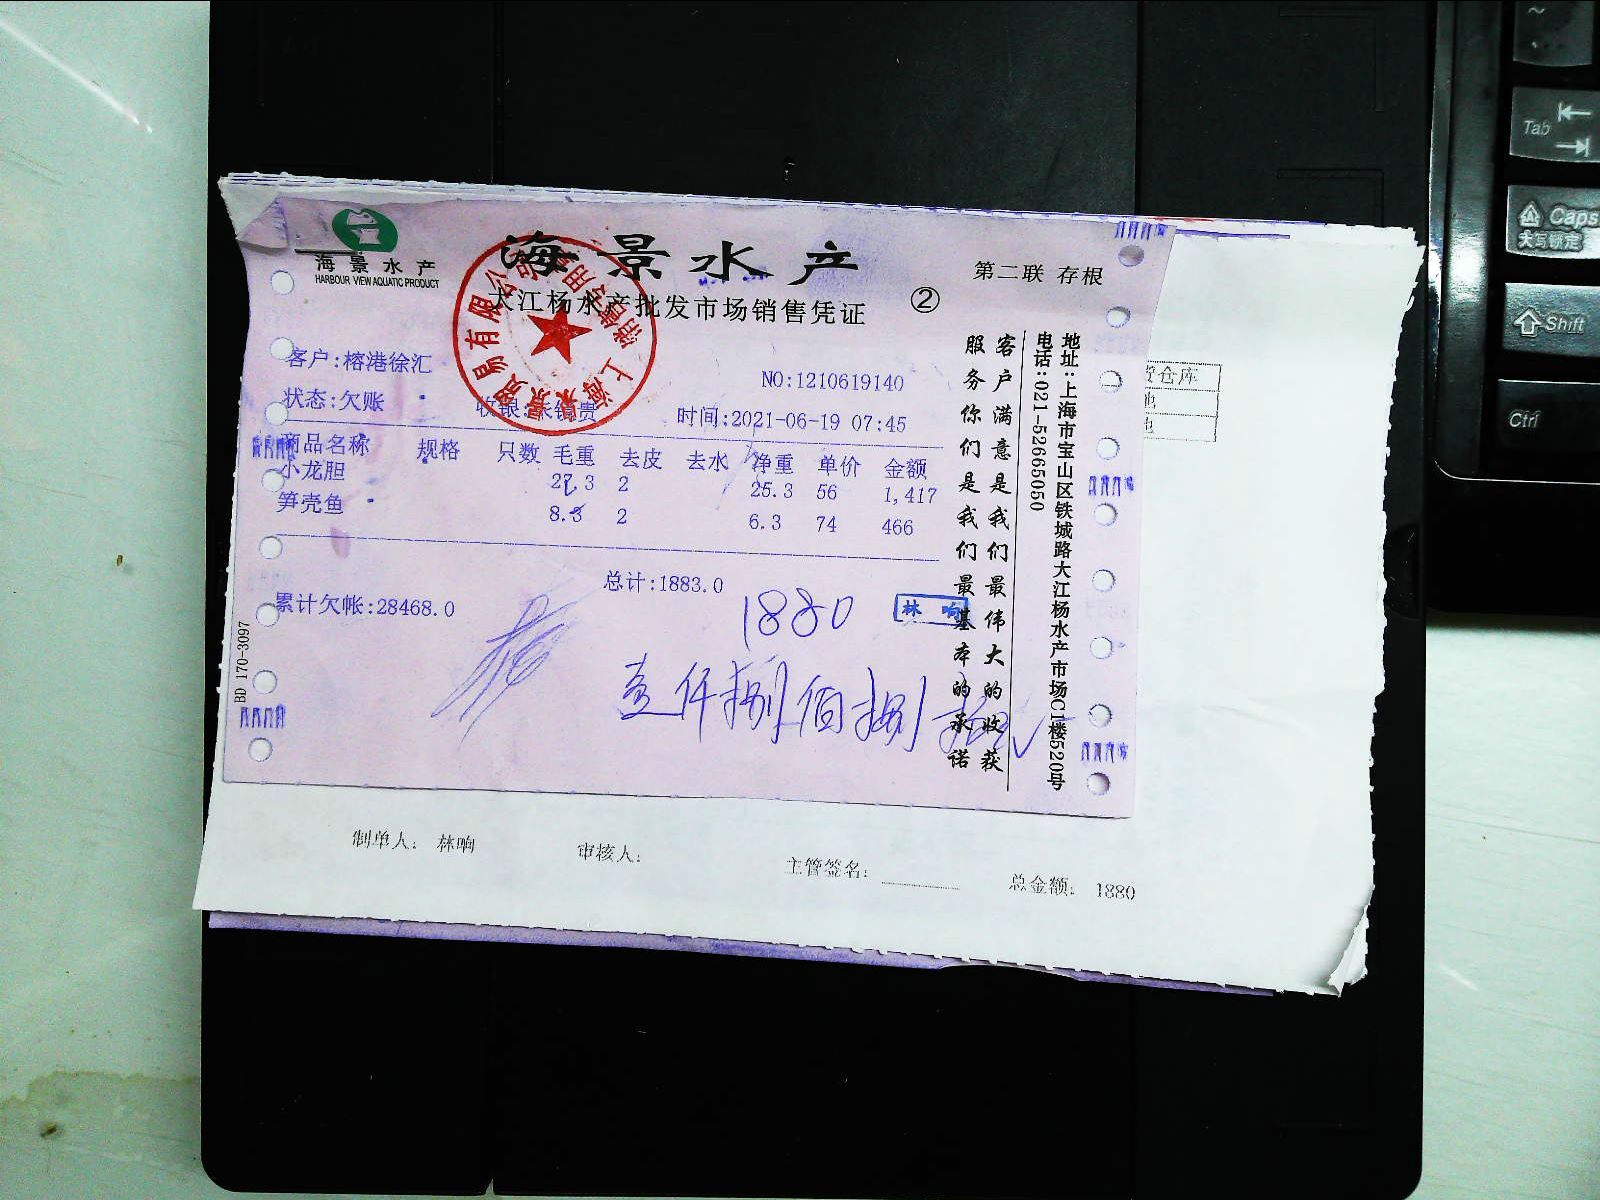 海景水产
HARBOUR VIEW AQUATIC PRODUCT
海景水产
大江杨水产批发市场销售凭证
②
第二联 存根
客户:榕港徐汇
NO:1210619140
状态:欠账
收银:
时间:2021-06-19 07:45
商品名称 规格 只数 毛重 去皮 去水 净重 单价 金额
小龙胆 27.3 2 25.3 56 1,417
笋壳鱼 8.3 2 6.3 74 466
总计:1883.0
累计欠帐:28468.0
1880
林响
壹仟捌佰捌拾元
BD 170-3097
客户满意是我们最伟大的收获
服务你们是我们最基本的承诺
地址:上海市宝山区铁城路大江杨水产市场C1楼520号
电话:021-52665050
制单人: 林响
审核人:
主管签名:
总金额: 1880
仓库
Tab
Caps
大写锁定
Shift
Ctrl